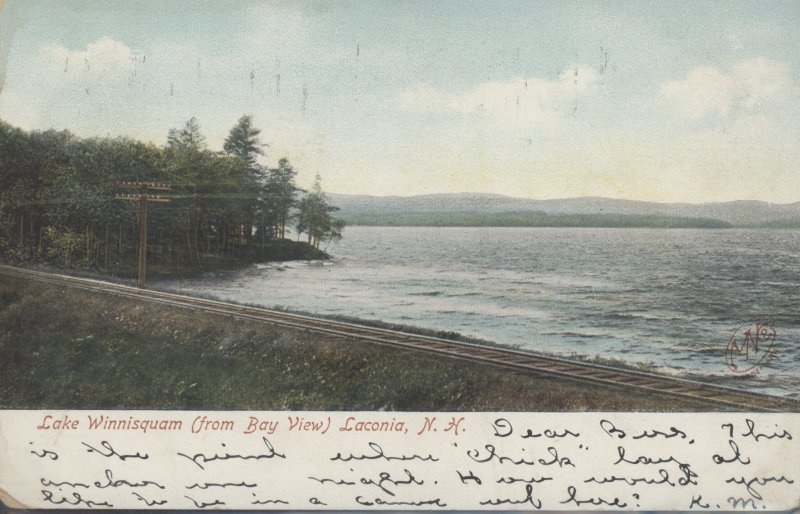 Lake Winnisquam (from Bay View) Laconia, N. H. Dear Bess, This
is the point where "Chick" lay at
anchor one night. How would you
like to be in a canoe out here? K. M.